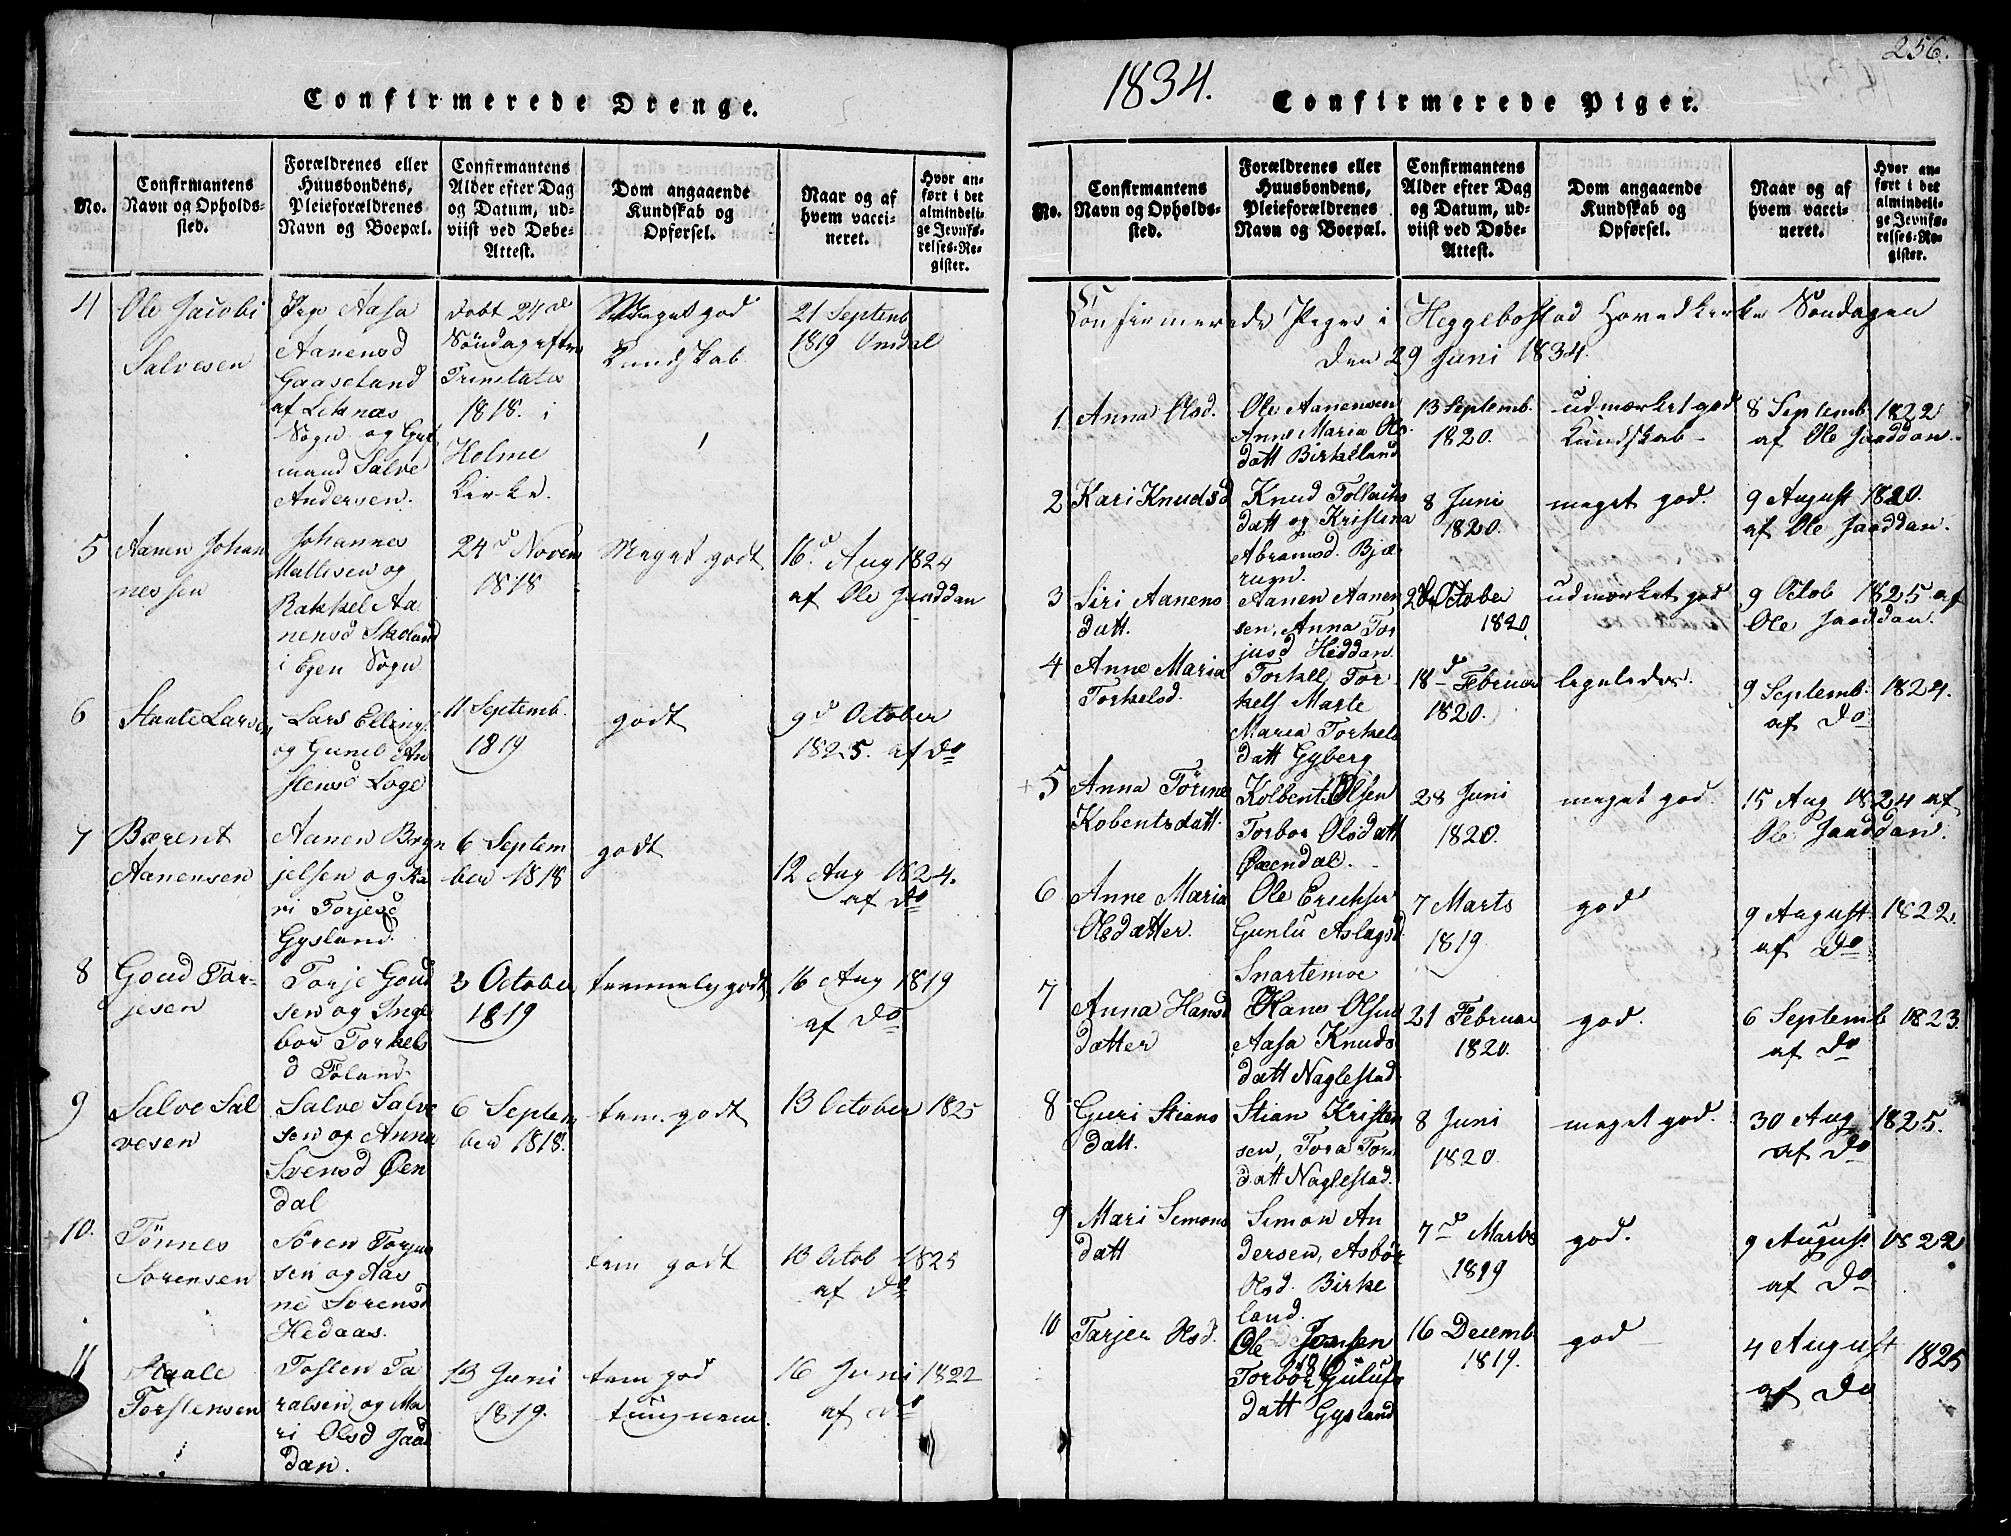 Confirmerede Drenge.
No.
Confirmantens
Navn og Opholds-
sted.
Forældrenes eller
Huusbondens,
Pleieforældrenes
Navn og Boepæl.
Confirmantens
Alder efter Dag
og Datum, ud-
viist ved Døbe-
Attest.
Dom angaaende
Kundskab og
Opførsel.
Naar og af
hvem vacci-
neret.
Hvor an-
ført i det
almindeli-
ge Jevnfø-
relses-Re-
gister.
4
Ole Jacobi
Salvesen
Pige Aasa
Aanensd
Gaaseland
af Leknæs
Sogn og
mand Salve
Andersen.
Døbt 24de
Søndag efter
Trinitatis
1818. i
Holme
Kirke.
Meget god
Kundskab
21 Septemb
1819 Undal
5
Aanen Johan
nessen
Johannes
Mattisen og
Rakkel Aa
nensd Skeland
i Egen Sogn
24d Novem
1818
Meget godt
16d Aug 1824
af Ole Jaaddan
6
Staale Larsen
Lars Ellings.
og Guneld An
stensd Loge
11 Septemb.
1819
godt
9d October
1825. af Do
7
Bærent
Aanensen
Aanen Bryn
jelsen og Ka
ri Torjesd
Gysland.
6 Septem
ber 1818
godt
12 Aug 1824.
af Do
8
Goud Tor-
jesen
Torje Goud
sen og Inge
bor Torkels
d Føland.
3 October
1819
temmelig godt
16 Aug 1819
af Do
9
Salve Sal
vesen
Salve Salve
sen og Anna
Svensd Øen
dal
6 Septem
ber 1818.
tem. godt
13 October 1825
10.
Tønnes
Sørensen
Søren Torju
sen og Aas
ne Sørensd
Hedaas.
tem godt
13 Octob 1825
af Do
11
Staale
Torstensen
Tosten Ta
ralsen og Ma
ri Olsd Jaad
dan.
13 Juni
1819.
tem god
tungnem.
16 Juni 1822
af Do
256.
1834.
Confirmerede Piger.
No.
Confirmantens
Navn og Opholds-
sted.
Forældrenes eller
Huusbondens,
Pleieforældrenes
Navn og Boepæl.
Confirmantens
Alder efter Dag
og Datum, ud-
viist ved Døbe-
Attest.
Dom angaaende
Kundskab og
Opførsel.
Naar og af
hvem vacci-
neret.
Hvor an-
ført i det
almindeli-
ge Jevnfø-
relses-Re-
gister.
Confirmerede Piger i Heggebostad Hovedkirke Søndagen
den 29 Juni 1834.
1
Anna Olsd.
Ole Aanensen
Anne Maria Ols
datt Birkeland
13 Septemb.
1820.
udmærket god
Kundskab
8 Septemb 1822
af Ole Jaaddan.
2
Kari Knudsd
Knud Tollachs
datt og Kristina
Abramsd. Bjæ
rugn.
8 Juni
1820.
meget god.
9 August 1820.
af Ole Jaaddan.
3
Siri Aanens
datt.
Aanen Aanen
sen, Anna Tor
jusd Heddan
October
1820
udmærket god
9 Octob 1825 af
Ole Jaaddan.
4
Anne Maria
Torkelsd.
Torkell Tor
kels Marte
Maria Torkels
datt Gyberg
18d Februar
1820.
ligeledes.
9 Septemb. 1824.
af Do
+5
Anna Tørine
Kobentsdatt.
Kolbent Olsen
Torbor Olsdatt
Øxendal.
28 Juni
1820.
meget god.
15 Aug 1824 af
Ole Jaaddan.
6
Anne Maria
Olsdatter.
Ole Erichsen
Gunlu Aslagsd.
Snartemoe
7 Marts
1819.
god
9 August 1822.
af Do
7
Anna Hans
datter
Hans Olsen
Aasa Knuds
datt Naglestad.
21 Februar
1820.
god.
6 Septemb 1823.
af Do
8
Guri Stians
datt.
Stian Kristen
sen, Tora Tors
datt Naglestad.
8 Juni
1820
meget god.
30 Aug 1825.
af Do
9
Mari Simons
datt
Simon An
dersen, Asbør
Olsd. Birke
land.
7d Marts
1819
god.
9 August 1822
af Do
10
Tarjer Olsd.
Ole Jensen
Torbør Gulufs
datt Gysland
16 Decemb
1819.
god
4 August 1825
af Do